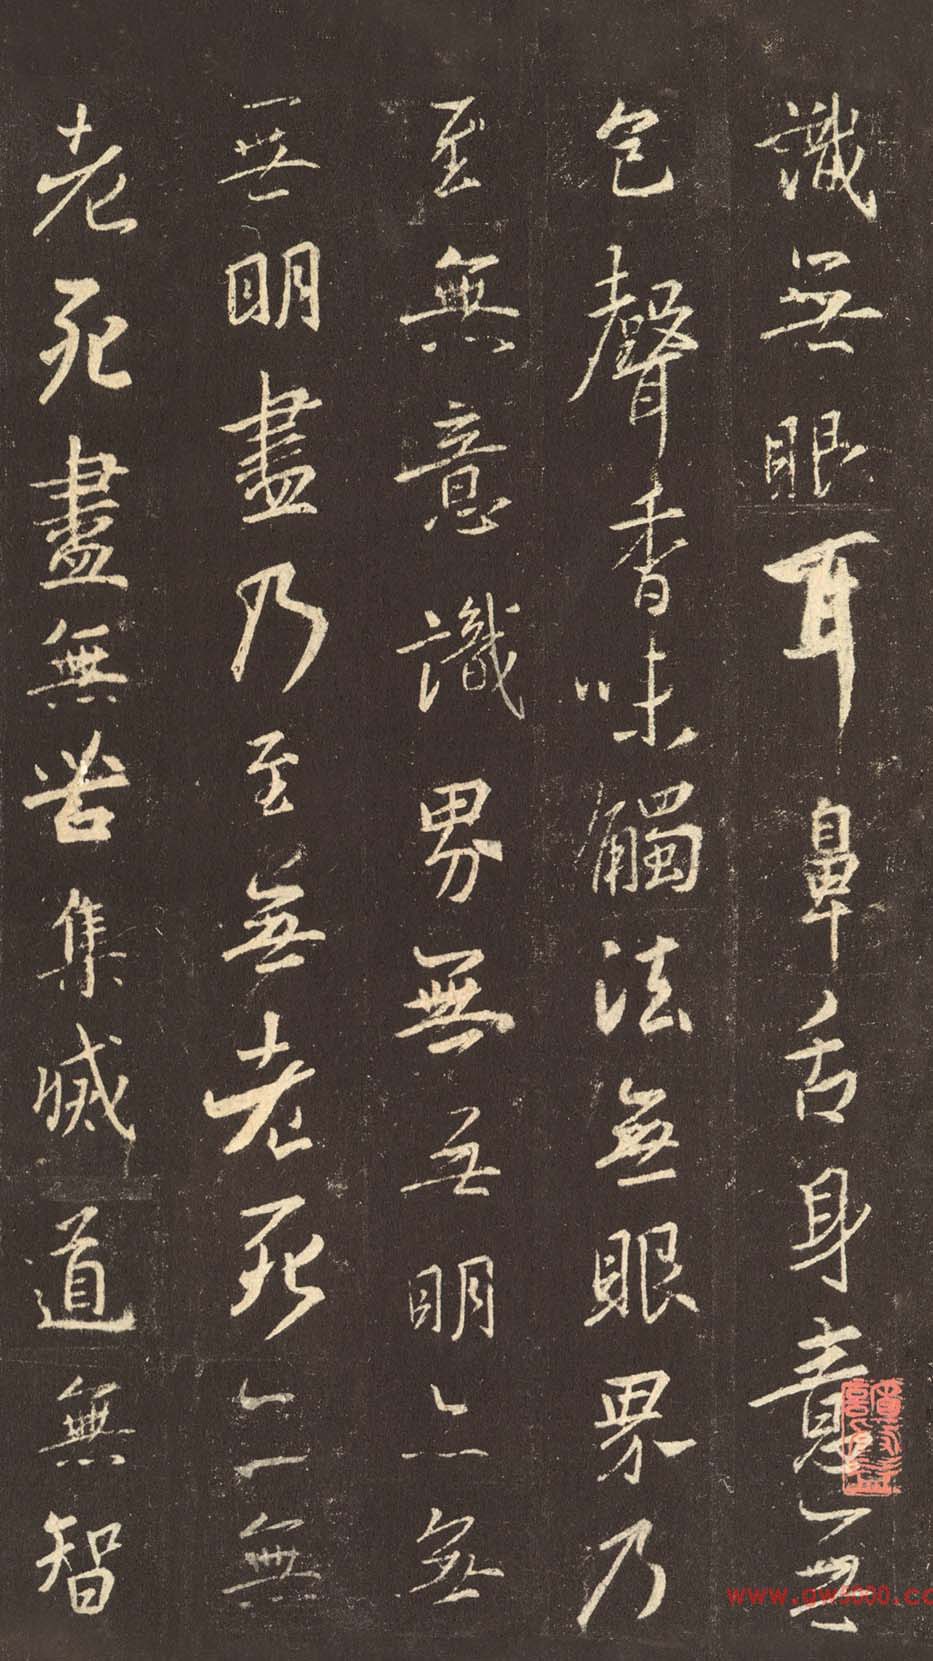 識無眼耳鼻舌身意無
色聲香味觸法無眼界乃
至無意識界無無明亦無
無明盡乃至無老死亦無
老死盡無苦集滅道無智
www.gw5000.co